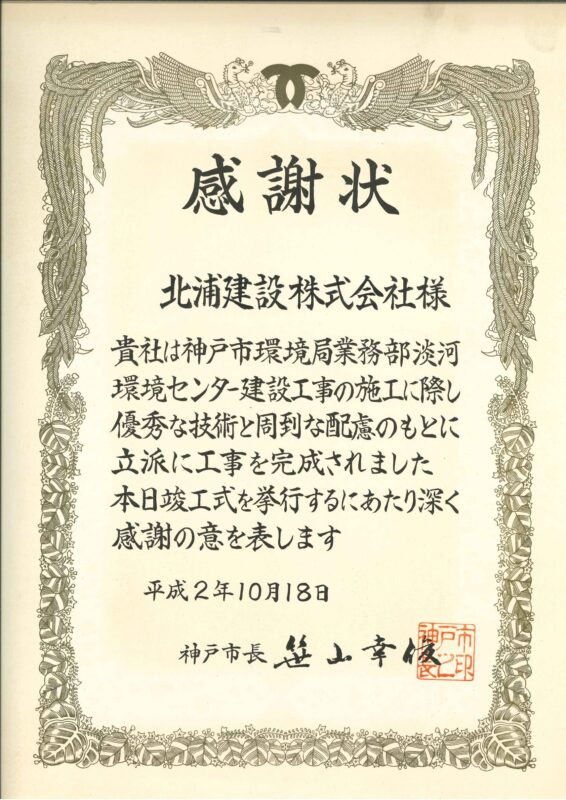 感謝状
北浦建設株式会社様
貴社は神戸市環境局業務部淡河
環境センター建設工事の施工に際し
優秀な技術と周到な配慮のもとに
立派に工事を完成されました
本日竣工式を挙行するにあたり深く
感謝の意を表します
平成2年10月18日
神戸市長 笹山幸俊